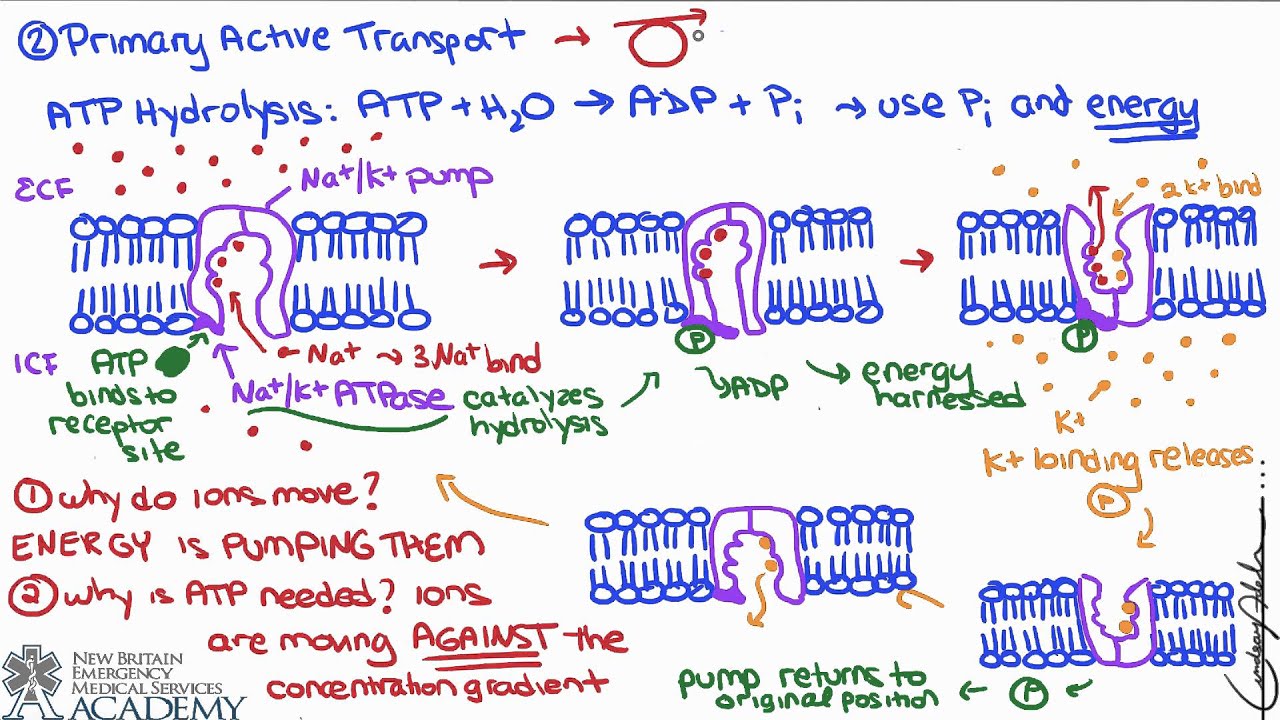 ② Primary Active Transport →
ATP Hydrolysis: ATP + H₂O → ADP + Pᵢ → use Pᵢ and energy
ECF
Na⁺/K⁺ pump
2K⁺ bind
ICF
ATP
binds to
receptor
site
Na⁺ → 3Na⁺ bind
Na⁺/K⁺ ATPase
catalyzes
hydrolysis
P
ADP
energy
harnessed
P
K+
K+ binding releases
P
① Why do ions move?
ENERGY is PUMPING THEM
② Why is ATP needed? Ions
are moving AGAINST the
concentration gradient
pump returns to
original position
P
NEW BRITAIN
EMERGENCY
MEDICAL SERVICES
ACADEMY